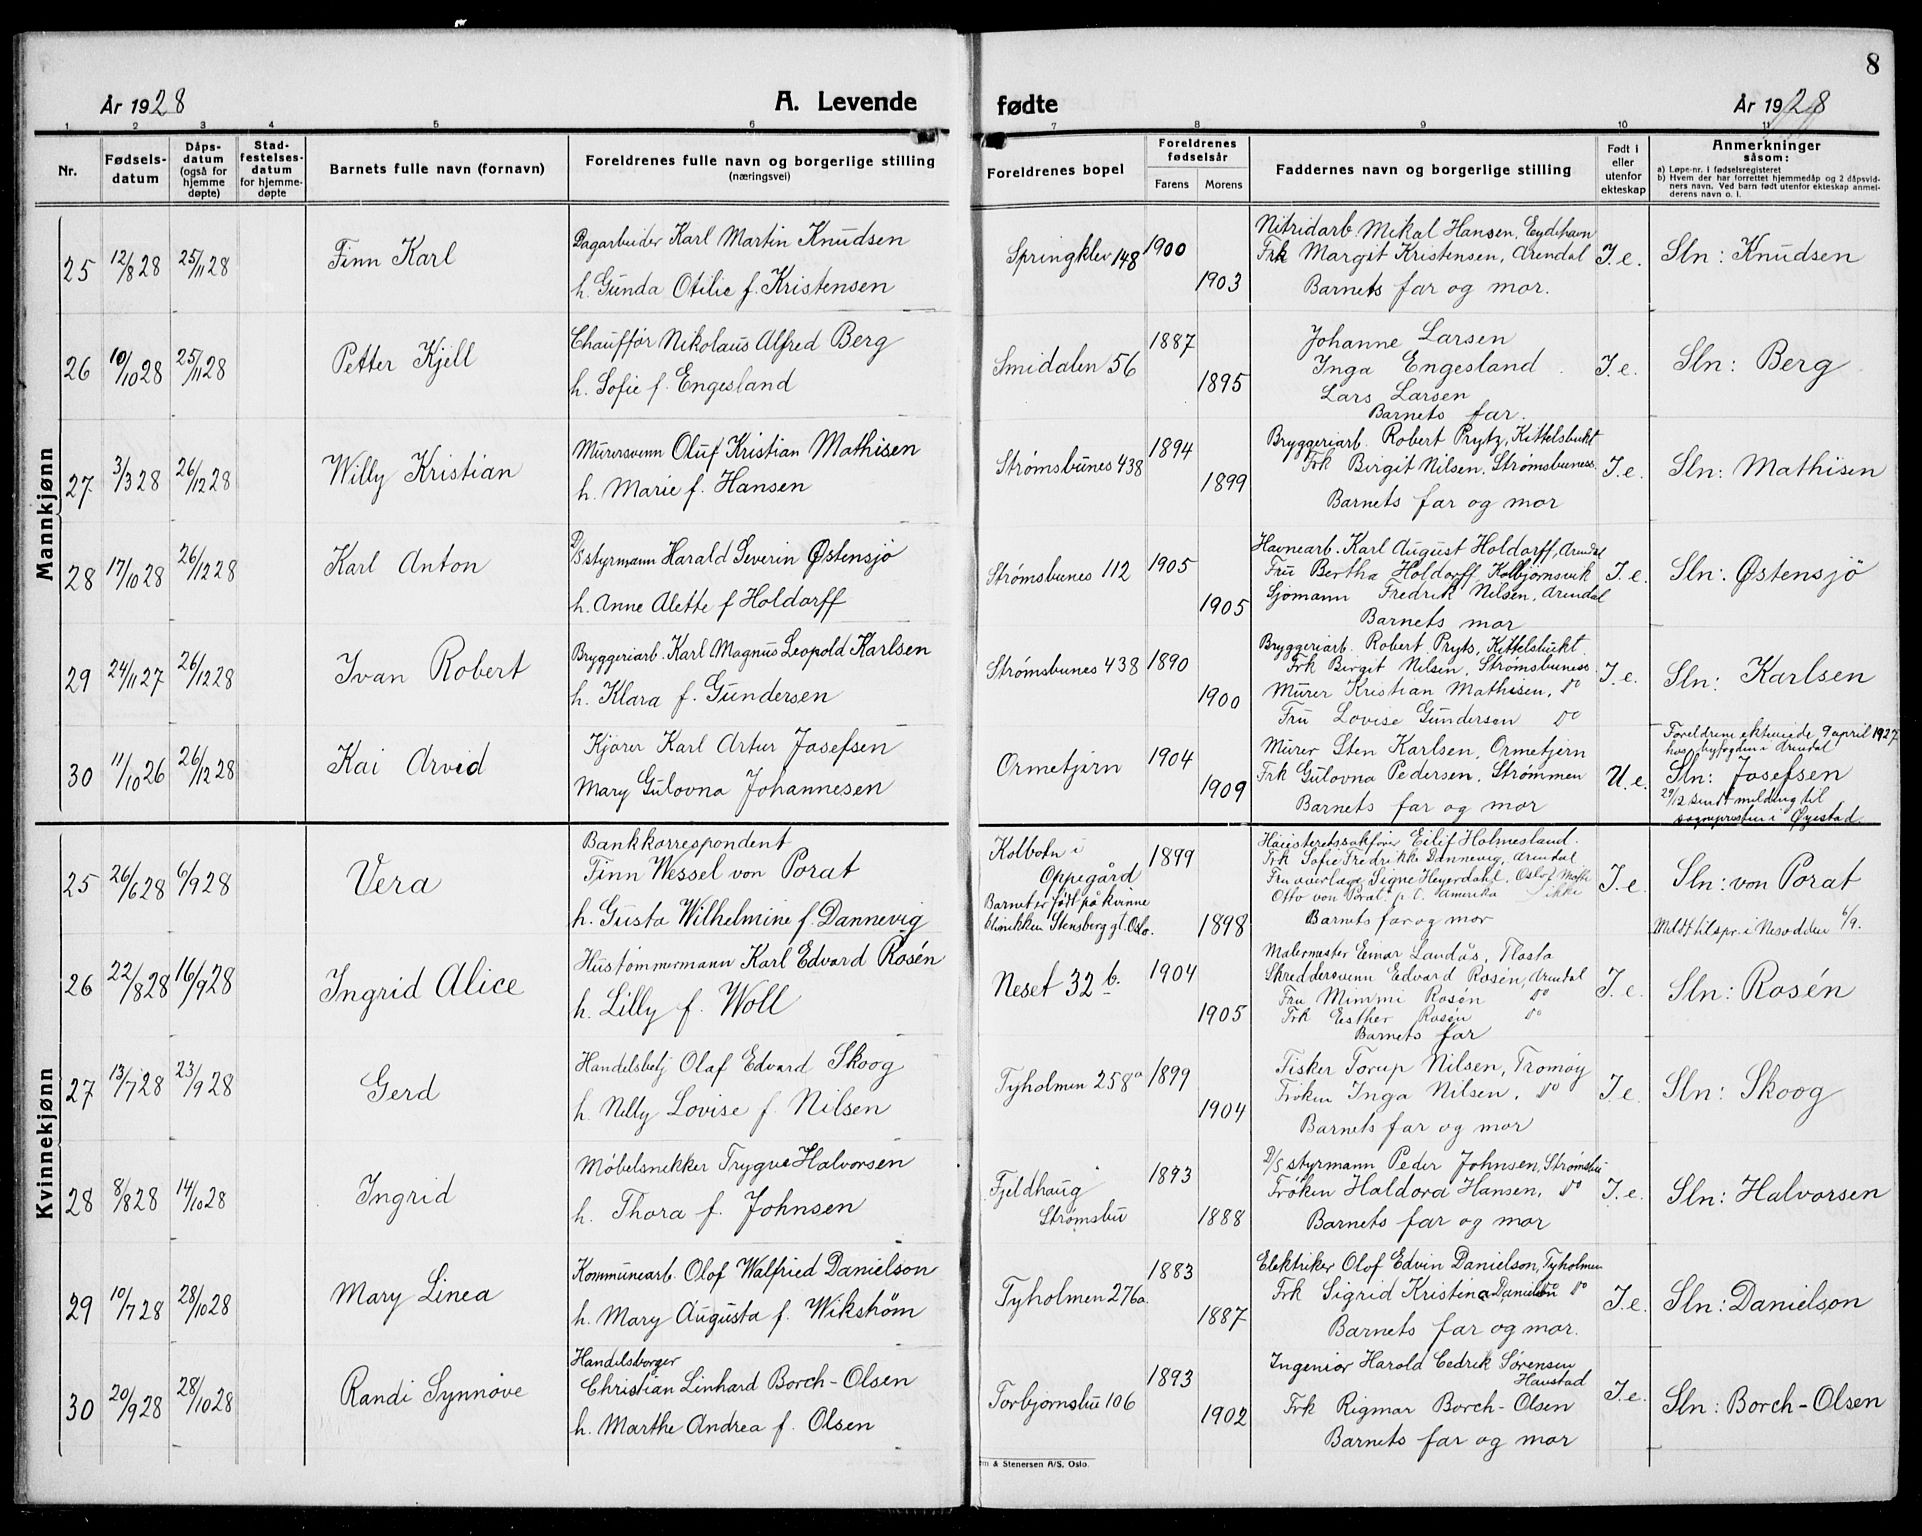 8
År 1928
A. Levende
fødte
År 1928
1 2 3 4 5 6 7 8 9 10 11
Nr.
Fødsels-
datum
Dåps-
datum
(også for
hjemme
døpte)
Stad-
festelses-
datum
for hjemme-
døpte
Barnets fulle navn (fornavn)
Foreldrenes fulle navn og borgerlige stilling
(næringsvei)
Foreldrenes bopel
Foreldrenes
fødselsår
Farens Morens
Faddernes navn og borgerlige stilling
Født i
eller
utenfor
ekteskap
Anmerkninger
såsom:
a) Løpe-nr. i fødselsregisteret
b) Hvem der har forrettet hjemmedåp og 2 dåpsvid-
ners navn. Ved barn født utenfor ekteskap anmel-
derens navn o. l.
Mannkjønn
25 12/8 28 25/11 28 Finn Karl
Dagarbeider Karl Martin Knudsen
h. Gunda Otilie f. Kristensen
Springklev 148 1900 1903
Nitridarb. Mikal Hansen, Eydehavn
Frk Margit Kristensen, Arendal
Barnets far og mor.
I.e. Sln: Knudsen
26 10/10 28 25/11 28 Petter Kjell
Chauffør Nikolaus Alfred Berg
h. Sofie f. Engesland
Smidalen 56 1887 1895
Johanne Larsen
Inga Engesland
Lars Larsen
Barnets far.
I.e. Sln: Berg
27 3/3 28 26/12 28 Willy Kristian
Murersvenn Oluf Kristian Mathisen
h. Marie f. Hansen
Strømsbunes 438 1894 1899
Bryggeriarb. Robert Prytz, Kittelsbukt
Frk Birgit Nilsen, Strømsbunes
Barnets far og mor
I.e. Sln: Mathisen
28 17/10 28 26/12 28 Karl Anton
D/S styrmann Harald Severin Østensjø
h. Anne Alette f Holdorff
Strømsbunes 112 1905 1905
Havnearb. Karl August Holdorff, Arendal
Fru Bertha Holdorff, Kolbjørnsvik
Sjømann Fredrik Nilsen, Arendal
Barnets mor
I.e. Sln: Østensjø
29 24/11 27 26/12 28 Ivan Robert
Bryggeriarb. Karl Magnus Leopold Karlsen
h. Klara f. Gundersen
Strømsbunes 438 1890 1900
Bryggeriarb. Robert Pryts, Kittelsbukt.
Frk Birgit Nilsen, Strømsbunes
Murer Kristian Mathisen, do
Fru Lovise Gundersen do
I.e. Sln: Karlsen
30 11/10 26 26/12 28 Kai Arvid
Kjører Karl Artur Josefsen
Mary Gulovna Johannesen
Ormetjern 1904 1909
Murer Sten Karlsen, Ormetjern
Frk Gulovna Pedersen, Strømmen
Barnets far og mor
U.e.
Foreldrene ekteviede 9 april 1927
hos byfogden i Arendal
Sln: Josefsen
29/12 sendt melding til
sognepresten i Øyestad
Kvinnekjønn
25 26/6 28 6/9 28 Vera
Bankkorrespondent
Finn Wessel von Porat
h. Gusta Wilhelmine f. Dannevig
Kolbotn i
Oppegård
Barnet er født på kvinne
klinikken Stensberg gt. Oslo.
1899 1898
Høiesterettssakfører Eilif Holmesland.
Frk Sofie Fredrikke Dannevig, Arendal
Fru overlæge Signe Heyerdahl, Oslo
Otto von Porat p.t. Amerika
Barnets far og mor
I.e. Sln: von Porat
Meldt til spr. i Nesodden 6/9.
26 22/8 28 16/9 28 Ingrid Alice
Hustømmermann Karl Edvard Rosén
h. Lilly f. Woll
Neset 32 b. 1904 1905
Malermester Einar Landås, Tlasta
Skreddersvenn Edvard Rosén, Arendal
Fru Mimmi Rosén do
Frk Esther Rosén do
Barnets far
I.e. Sln: Rosén
27 13/7 28 23/9 28 Gerd
Handelsbetj Olaf Edvard Skoog
h. Nilly Lovise f. Nilsen
Tyholmen 258a 1899 1904
Fisker Torup Nilsen, Tromøy
Frøken Inga Nilsen, do
Barnets far og mor
I.e. Sln: Skoog
28 8/8 28 14/10 28 Ingrid
Møbelsnikker Trygve Halvorsen
h. Thora f. Johnsen
Fjeldhaug
Strømsbu
1893 1888
D/S styrmann Peder Johnsen, Strømsbu
Frøken Haldora Hansen, do
Barnets far og mor
I.e. Sln: Halvorsen
29 10/7 28 28/10 28 Mary Linea
Kommunearb. Olof Walfried Danielson
h. Mary Augusta f. Wikstrøm
Tyholmen 276a. 1883 1887
Elektriker Olof Edvin Danielson, Tyholmen
Frk Sigrid Kristina Danielson do
Barnets far og mor.
I.e. Sln: Danielson
30 20/9 28 28/10 28 Randi Synnøve
Handelsborger
Christian Linhard Borch-Olsen
h. Marthe Andrea f. Olsen
Torbjørnsbu 106 1893 1902
Ingeniør Harold Cedrik Sørensen
Haustad
Frk Rigmor Borch-Olsen
Barnets far og mor
I.e. Sln: Borch-Olsen
m & Stenersen A/S, Oslo.